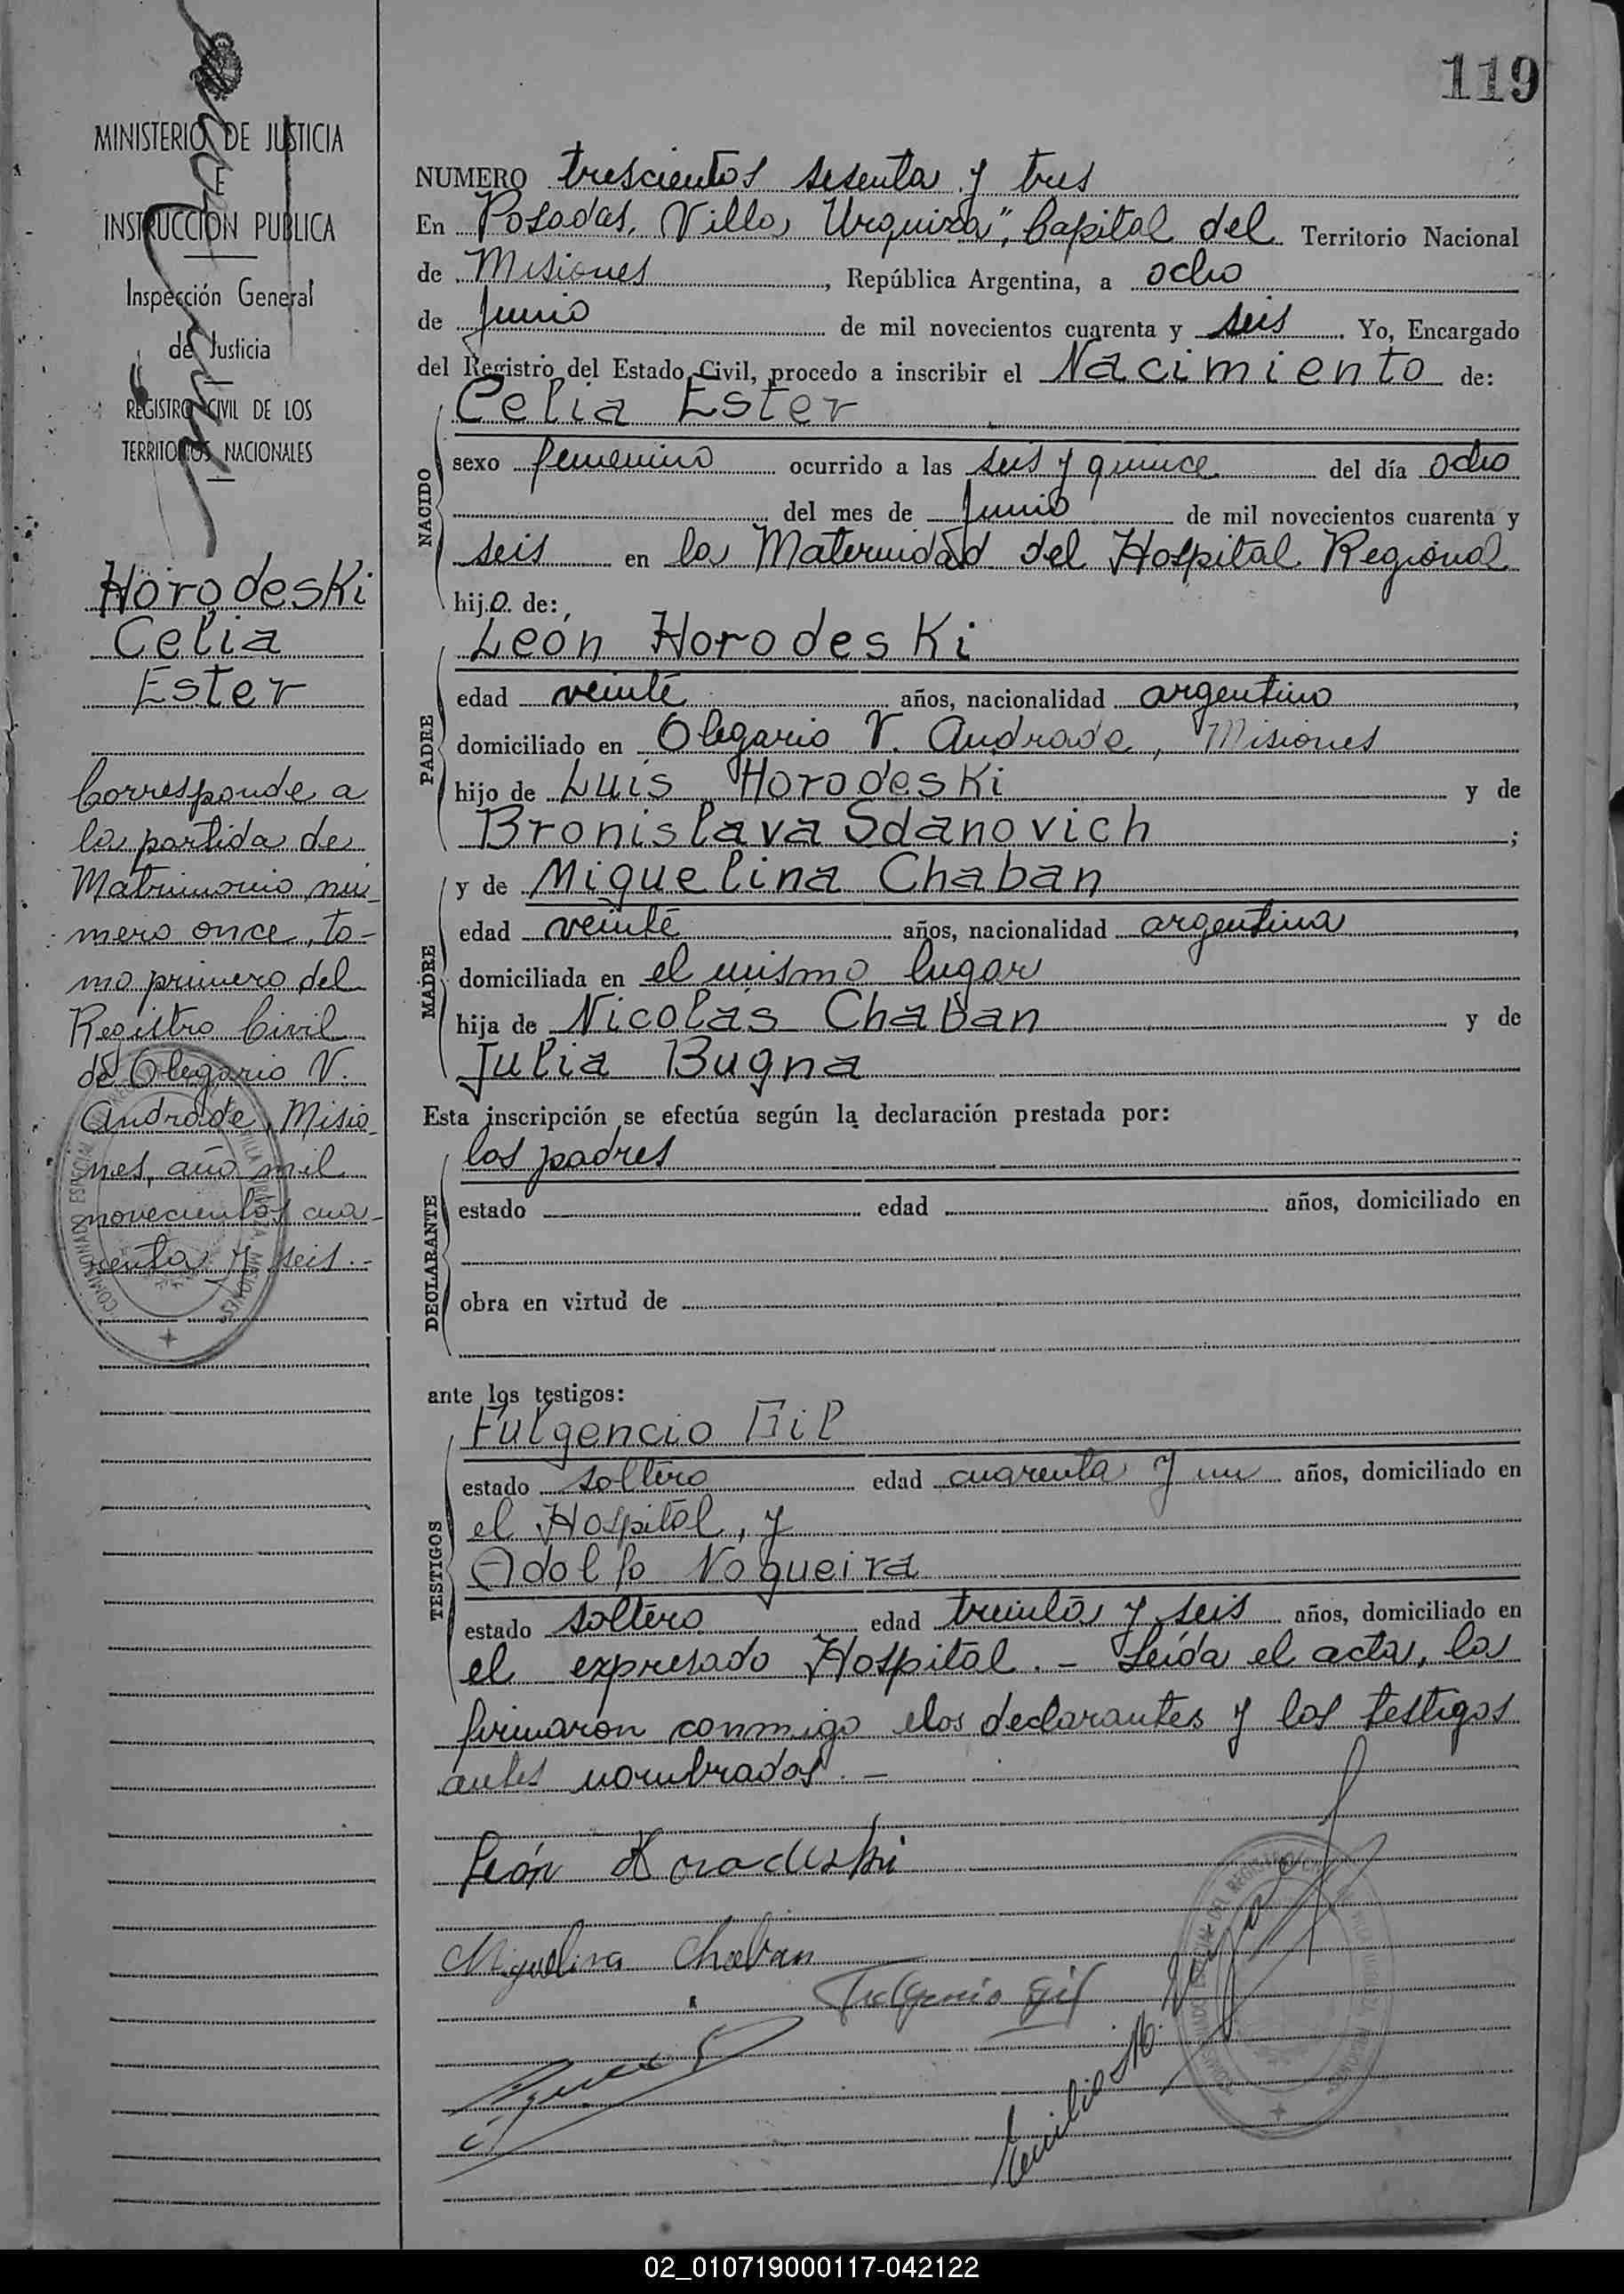 119
MINISTERIO DE JUSTICIA
E
INSTRUCCION PUBLICA
Inspección General
de Justicia
REGISTRO CIVIL DE LOS
TERRITORIOS NACIONALES
Horodeski
Celia
Ester
Corresponde a
la partida de
Matrimonio nú-
mero once, to-
mo primero del
Registro Civil
de Olegario V.
Andrade, Misio-
nes, año mil
novecientos cua-
renta y seis.-
NUMERO trescientos sesenta y tres
En Posadas, Villa Urquiza", Capital del Territorio Nacional
de Misiones, República Argentina, a ocho
de Junio de mil novecientos cuarenta y seis. Yo, Encargado
del Registro del Estado Civil, procedo a inscribir el Nacimiento de:
Celia Ester
NACIDO
sexo femenino ocurrido a las seis y quince del día ocho
del mes de Junio de mil novecientos cuarenta y
seis en la Maternidad del Hospital Regional
hija de:
León Horodeski
PADRE
edad veinte años, nacionalidad argentino,
domiciliado en Olegario V. Andrade, Misiones
hijo de Luis Horodeski y de
Bronislava Sdanovich;
y de Miguelina Chaban
MADRE
edad veinte años, nacionalidad argentina,
domiciliada en el mismo lugar
hija de Nicolás Chaban y de
Julia Bugna
Esta inscripción se efectúa según la declaración prestada por:
los padres
DECLARANTE
estado edad años, domiciliado en
obra en virtud de
ante los testigos:
Fulgencio Gil
TESTIGOS
estado soltero edad cuarenta y un años, domiciliado en
el Hospital, y
Adolfo Nogueira
estado soltero edad treinta y seis años, domiciliado en
el expresado Hospital.- Leída el acta, la
firmaron conmigo los declarantes y los testigos
antes nombrados.-
León Horodeski
Miguelina Chaban
Fulgencio Gil
Emilio M.
02_010719000117-042122